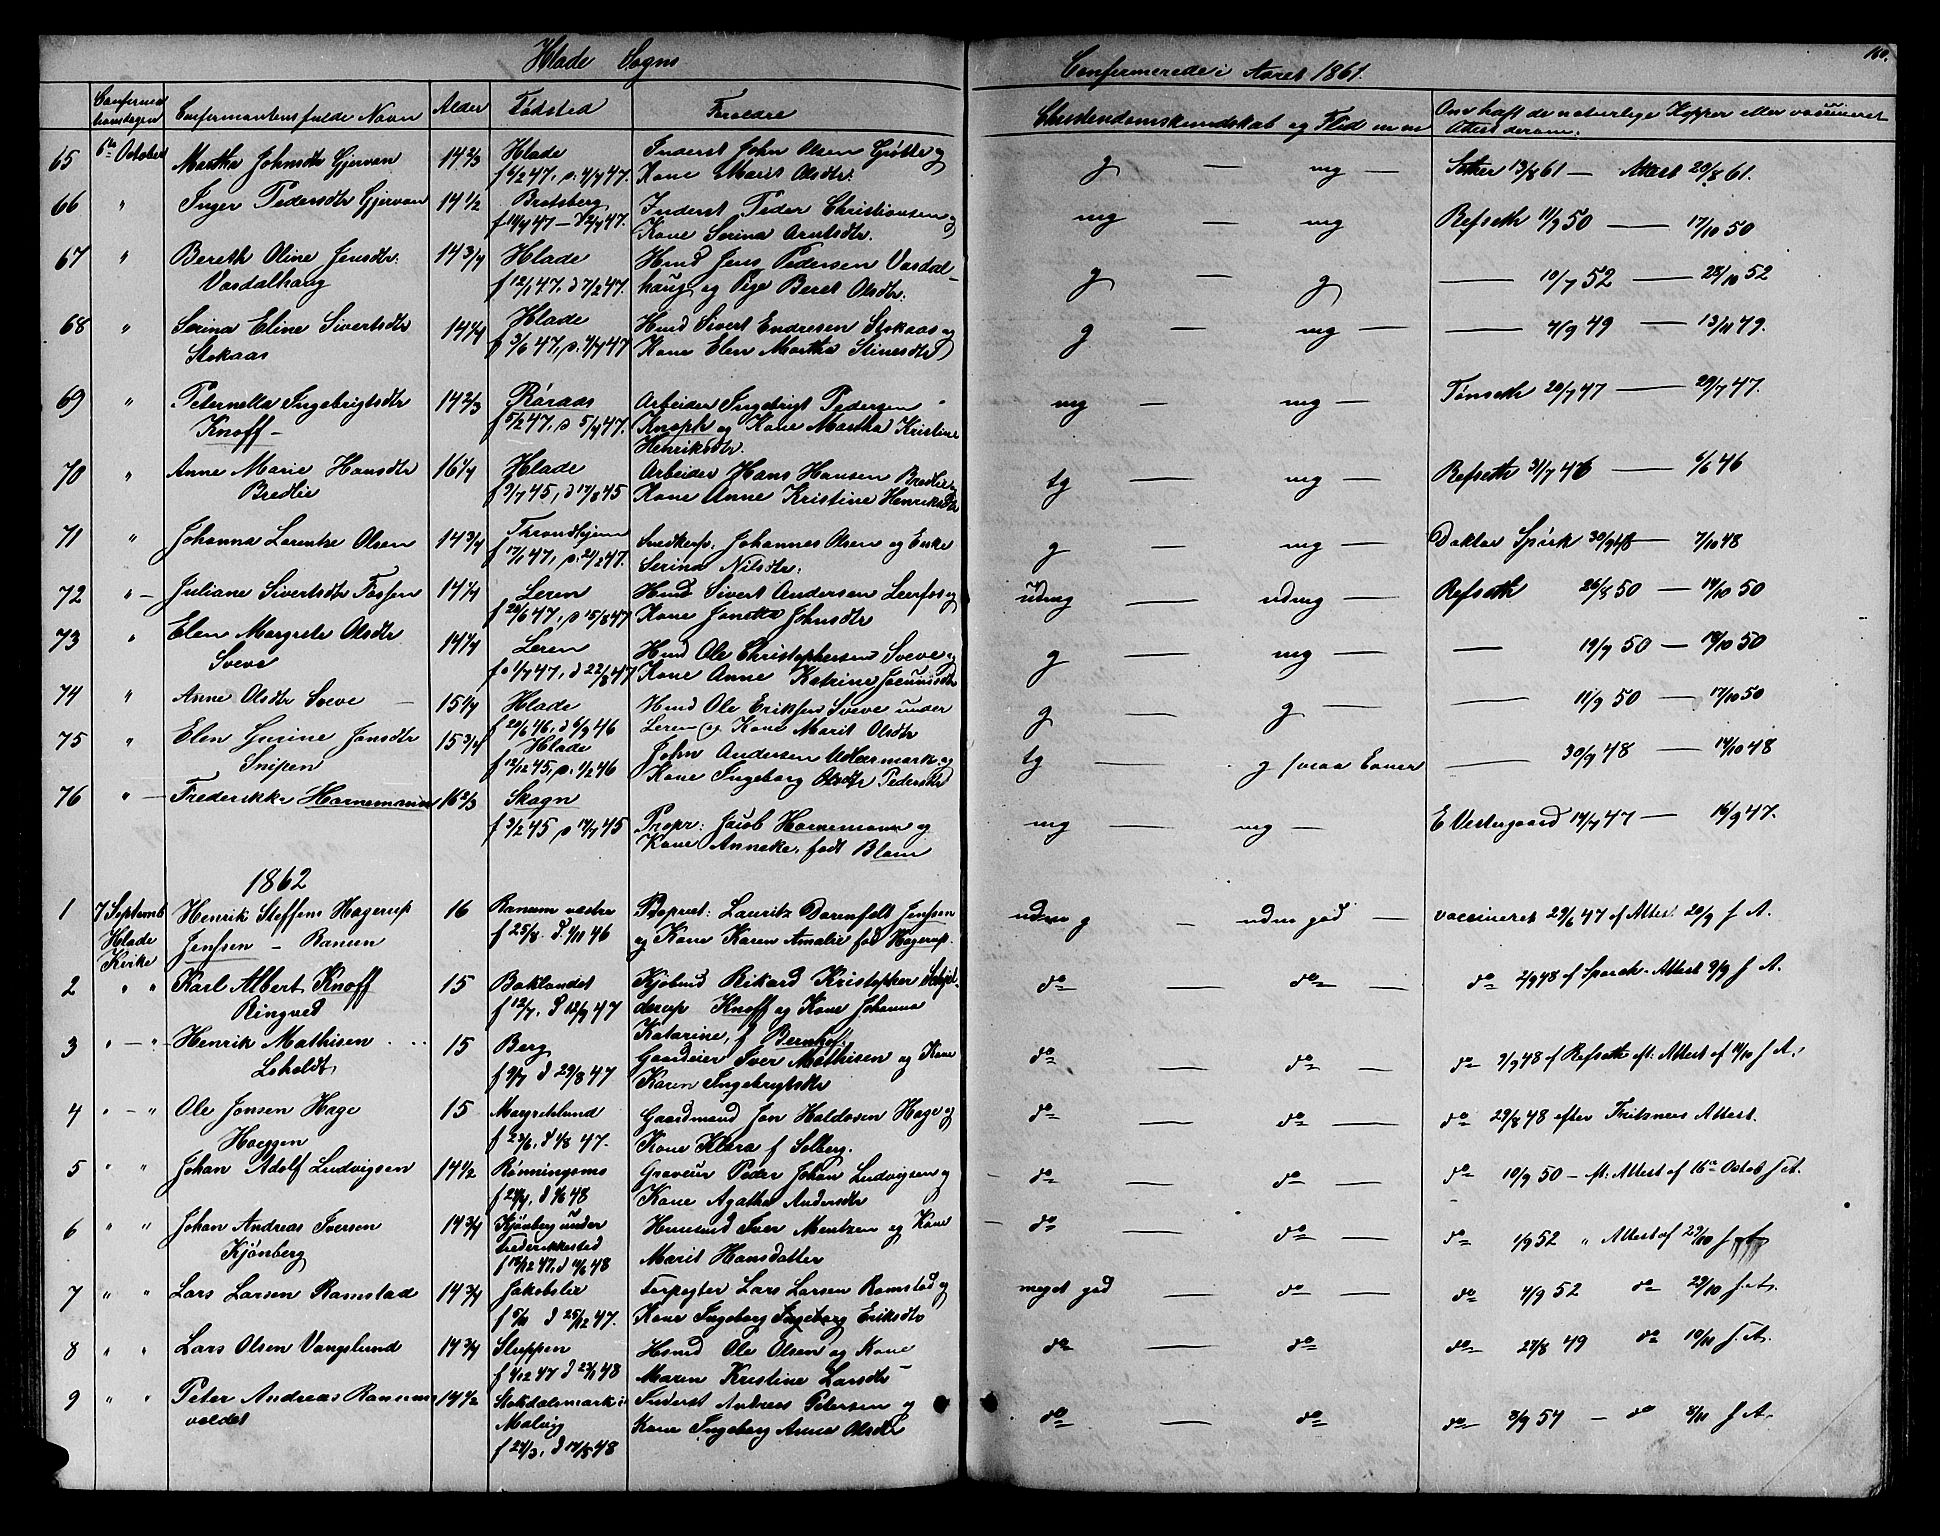 Hlade Sogn
Confirmerede i Aaret 1861.
160.
Confirmationsdagen Confirmantens fulde Navn Alder Fødsted Forældre Christendomskundskab og Flid m m Om haft de naturlige Kopper eller vaccineret Attest derom.
65 6te October Martha Johnsdtr Gjervan 14 2/3 Hlade Inderst John Olsen og g — mg — 13/8 61 — Attest 20/8 61.
f 6/2 47, Kone Marit Olsdtr.
66 " Inger Pedersdtr Gjervan 14 1/2 Bratsberg Inderst Peder Christiansen og mg mg Refseth 11/9 50 — 17/10 50
Kone Serina Arntsdtr.
67 " Bereth Oline Jensdtr. 14 3/4 Hlade Hmd Jens Pedersen Vasdal- g — g — 10/7 52 — 28/10 52
Vasdalhaug f 12/1 47. d 7/2 47. haug og Pige Beret Olsdtr.
68 " Serina Eline Sivertsdtr 14 1/4 Hlade Hmd Sivert Endresen Stokaas og g — mg — 4/9 49 — 13/11 49.
Stokaas Kone Elen Martha Stinesdtr
69 " Peternella Ingebrigtsdtr 14 2/3 Røraas Arbeider Ingebrigt Pedersen mg — mg — Tønseth 20/7 47 — 29/7 47.
Knoff — f 5/2 47, d 5/4 47. Knoph og Kone Martha Kristine
Henriksdtr.
70 " Anne Marie Hansdtr 16 1/4 Hlade Arbeider Hans Hansen Bredlie og tg — mg — Refseth 31/7 46 — 6/8 46
Bredlie f 3/7 45, d 17/8 45 Kone Anne Kristine Henriksdtr
71 " Johanna Lorentze Olsen 14 3/4 Throndhjem Snedkersv. Johannes Olsen og Enke g mg — Doktor Spørck 30/9 48 — 7/10 48
f 17/1 47, d. 21/2 47. Serina Nilsdtr.
72 " — Juliane Sivertsdtr Fossen 14 1/4 Leren Hmd Sivert Andersen Leerfos og udmg — udmg — Refseth 26/8 50 — 14/10 50
f 20/6 47, d 15/8 47 Kone Jonetta Johnsdtr
73 " Elen Margrete Olsdtr 14 1/4 Leren Hmd Ole Christophersen Sveve og g — mg — — 19/9 50 — 18/10 50
Sveve d 22/8 47 Kone Anne Katrine
74 " Anne Olsdtr Sveve — 15 1/4 Hlade Hmd Ole Eriksen Sveve under g — g — — 11/9 50 — 17/10 50
f 20/6 46, d 6/9 46 Leren og Kone Marit Olsdtr
75 " Elen Gusine Jonsdtr 15 3/4 Hlade John Andersen og tg — g — 30/9 48 — 14/10 48
Snipen f 12/12 45, d. 1/2 46 Kone Ingeborg Olsdtr Pedersdtr
76 " — Frederikke Hornemann 16 2/3 Skogn Propr: Jacob Hornemann og mg — mg — E Vestergaard 14/7 47 — 16/9 47.
f 3/2 45 d 17/4 45 Kone Anneke, født Blom
1862
1 7 Septemb Henrik Steffens Hagerup 16 Ranum vestre Lauritz Dorenfelt Jenssen udm g — udm god — vaccineret 29/6 47 ef Attest 20/9 f A.
Hlade Jenssen — Ranum f 25/8. d. 4/11 46 og Kone Karen Amalie fød Hagerup.
Kirke
2 " " Karl Albert Knoff 15 Baklandet Kjøbmd Rikard Kristopher Schjel- do — do — do 2/9 48 ef Spørck. Attest 9/9 f A.
Ringved f 12/7. d 12/9 47 derup Knoff og Kone Johanna
Katarine, f Bernhof.
3 " — " — Henrik Mathisen 15 Berg Gaardeier Iver Mathisen og Kone do — do — do 2/9 48 ef Refseth ef. Attest af 14/10 f A.
Loholdt f 9/7 d 29/8 47 Karen Ingebrigtsdtr
4 " — " Ole Jonsen Hage 15 Margretelund Gaardmand Jon Haldosen Hage og do — do — do 29/8 48 efter Attest.
Hoeggen f 23/6. d 1/8 47. Kone Klara f Solberg.
5 " " Johan Adolf Ludvigsen 14 1/2 Rønningsmo Graveur Peder Johan Ludvigsen og do — do — do 10/9 50 — ef. Attest af 16de Octob f A.
Kone Agathe Andersdtr
6 " " Johan Andreas Iversen 14 3/4 Kjønberg under Husmd Iver Mentzen og Kone do — do — do 1/9 52 " Attest af 29/10 f A
Kjønberg Frederikkested Marit Hansdatter
f 12/12 47, d 12/6 48
7 " " Lars Larsen Ramstad 14 3/4 Jakobsli Forpagter Lars Larsen Ramstad og meget god — do — do 4/9 52 do 29/10 f. A.
f 5/11 d 25/12 47. Kone Ingeborg Ingeborg Eriksdtr
8 " " Lars Olsen Vangslund 14 3/4 Sluppen Hsmd Ole Olsen og Kone do — do do 27/8 49 do 10/10 f. A.
f 4/12 47 d 23/1 48 Maren Kristine Larsdtr
9 " " Peter Andreas Ranums 14 1/2 Stokdalsmark i Inderst Andreas Petersen og do — do do 3/9 54 — do 8/11 f A.
voldet Malvig Kone Ingeborg Anna Olsdtr
f 27/3, d 14/5 48